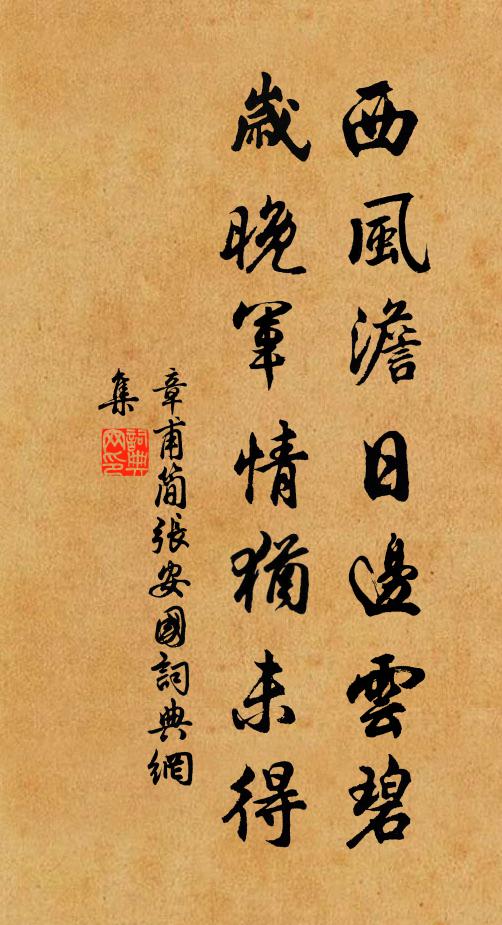 西風澹日邊雲碧
歲晚軍情猶未得
章甫簡張安國詞典網
集
詞典
网印